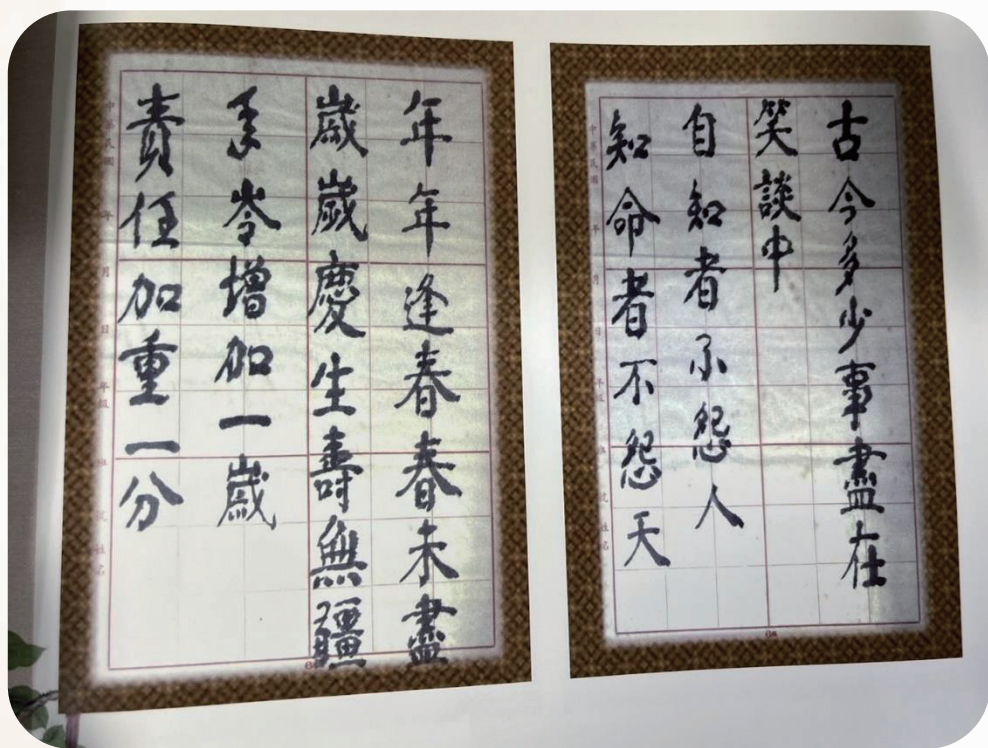 古今多少事盡在
笑談中
自知者不怨人
知命者不怨天
中華民國 年 月 日 年級 班 號 姓名
年年逢春春未盡
歲歲慶生壽無疆
年岑增加一歲
責任加重一分
中華民國 年 月 日 年級 班 號 姓名